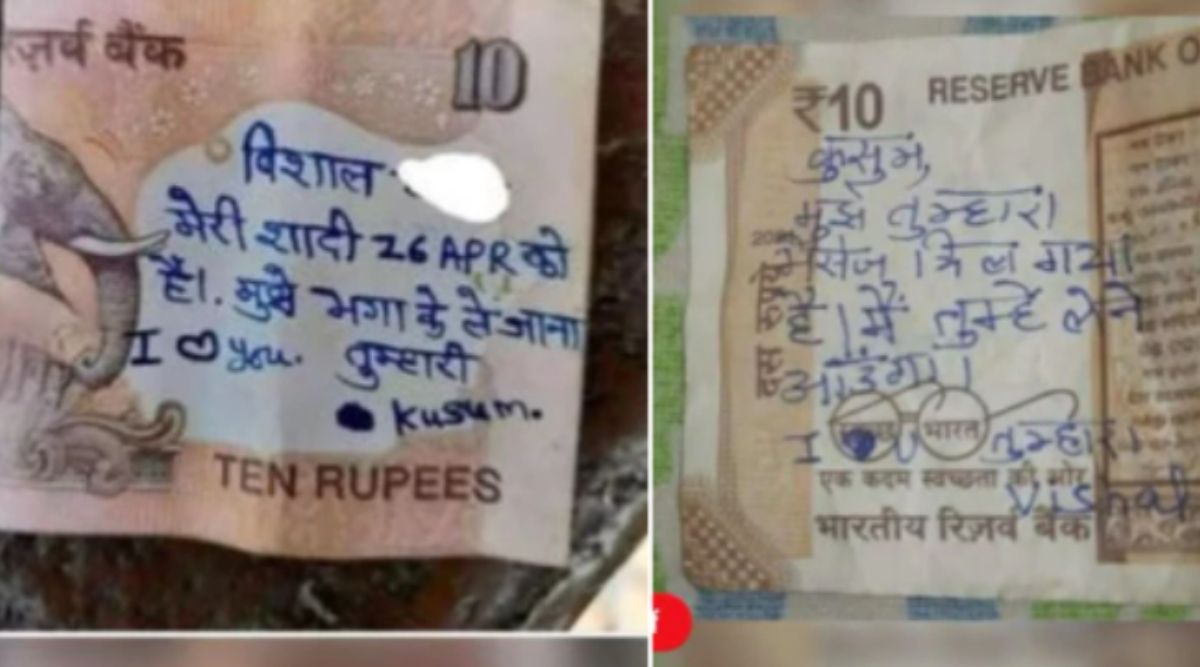 ज़र्व बैंक
10
विशाल
मेरी शादी 26 APR को
है। मुझे भगा के ले जाना
I ♡ you. तुम्हारी
kusum.
TEN RUPEES
₹10 RESERVE BANK O
कुसुम,
मुझे तुम्हारा
मिल गया
है। मैं तुम्हे लेने
आउंगा।
दस रुपये
भारत
I U तुम्हारा
Vishal
एक कदम स्वच्छता की ओर
भारतीय रिज़र्व बैंक